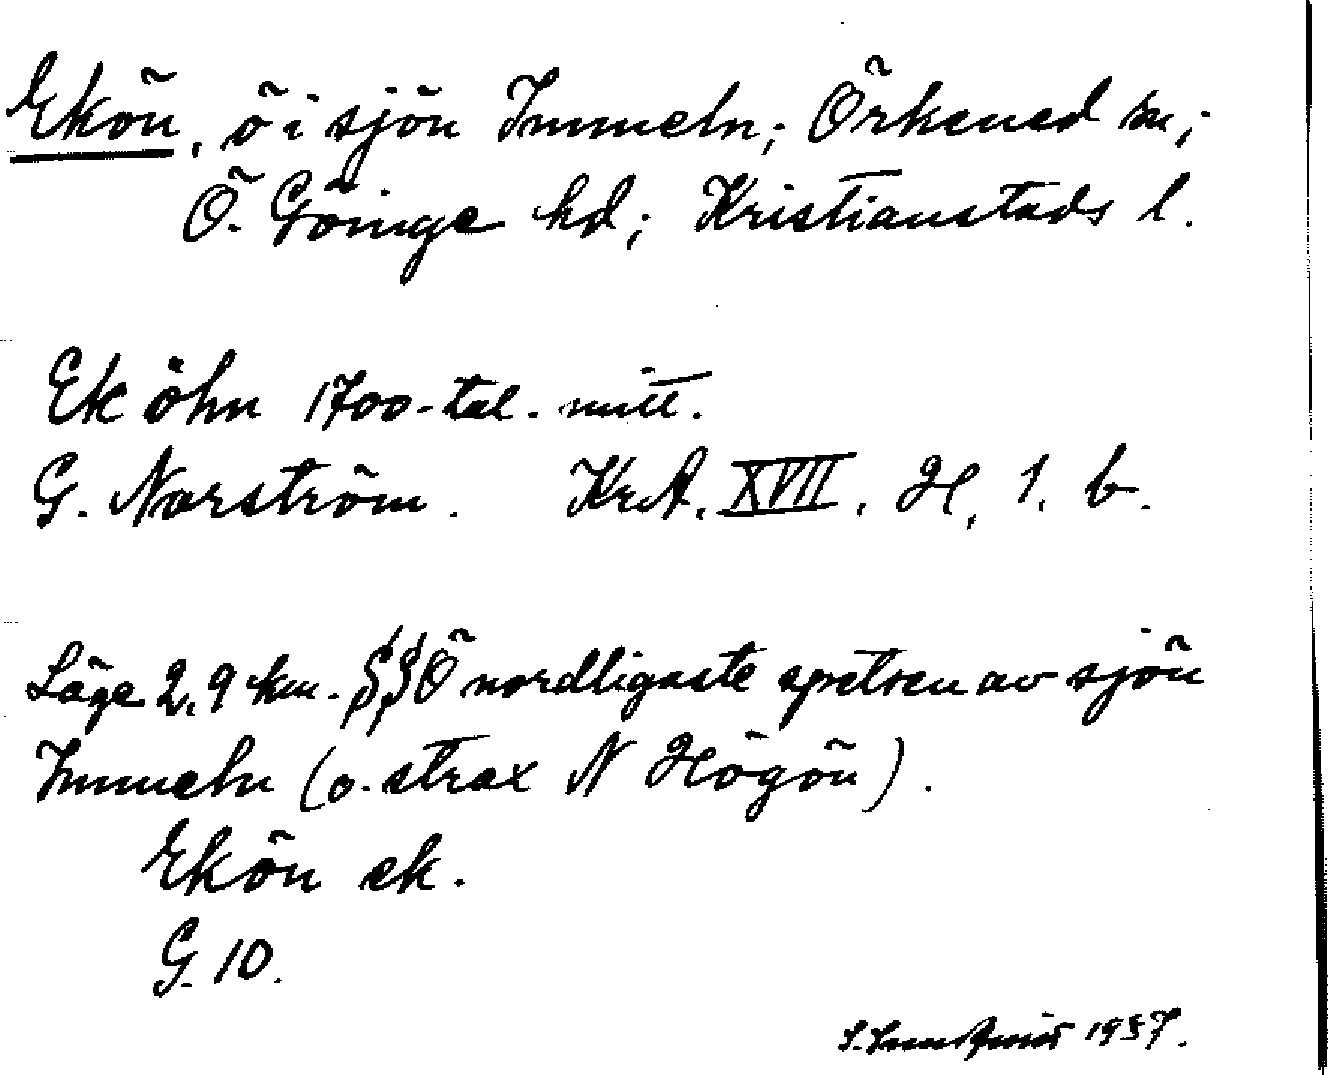 Ekön, ö i sjön Immeln; Örkened sn;
Ö. Göinge hd; Kristianstads l.
Ek öhn 1700-tal. mitt.
G. Norström. KrA. XVII. H, 1. b.
Läge 2,9 km. SSÖ nordligaste spetsen av sjön
Immeln (o. strax N Högön).
Ekön ek.
G. 10.
1937.